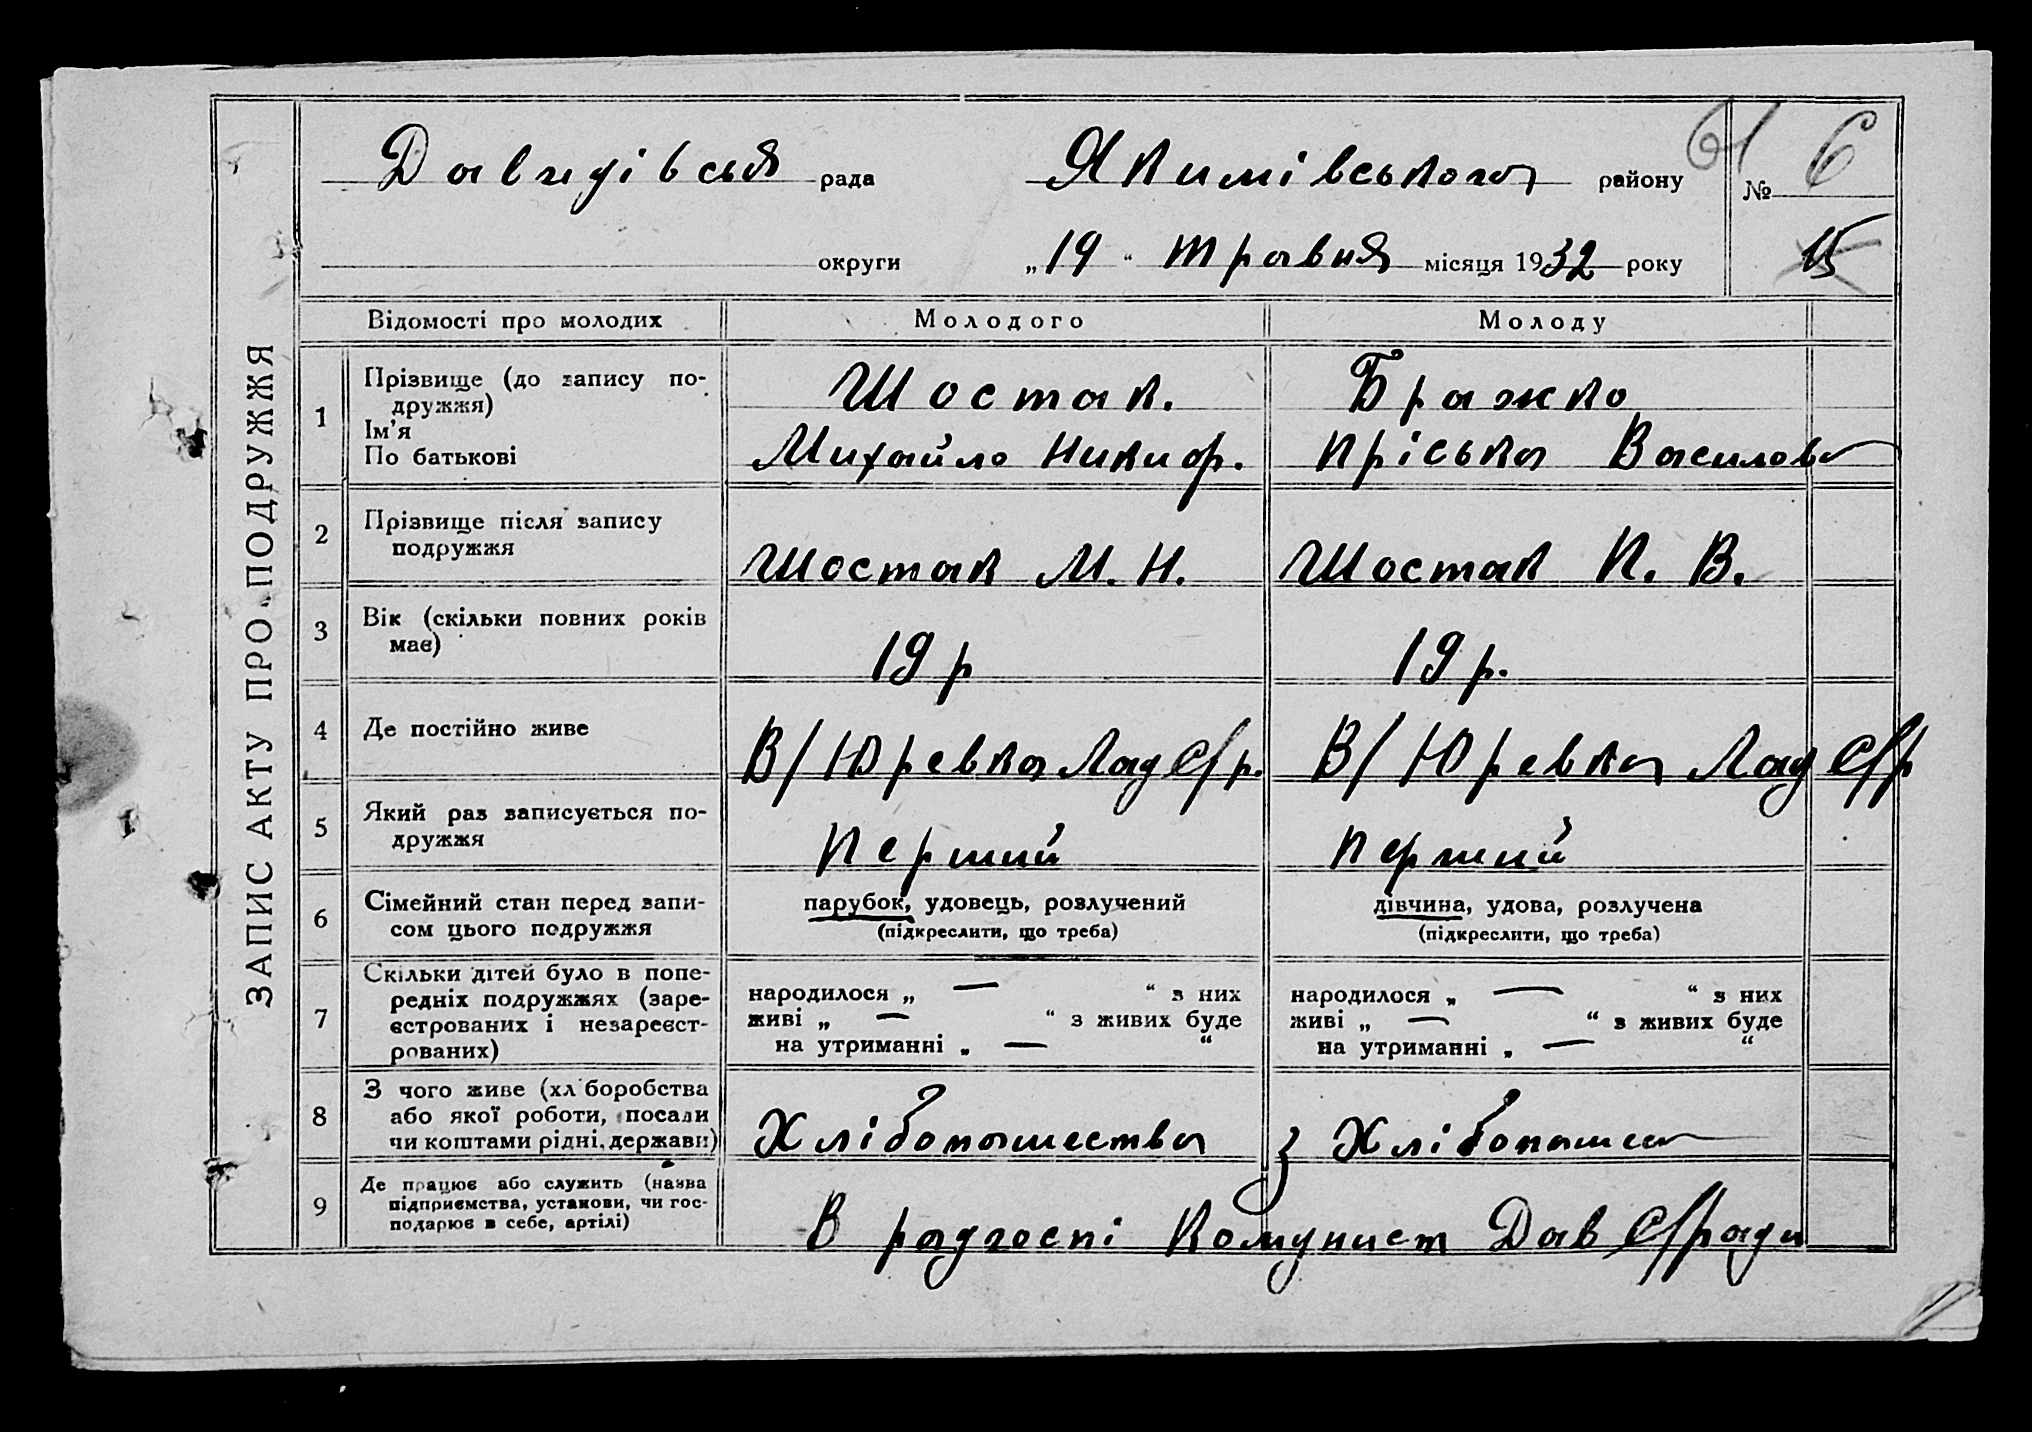 ЗАПИС АКТУ ПРО ПОДРУЖЖЯ
Давидівська рада Якимівського району № 6
61
округи „19“ травня місяця 1932 року 15
Відомості про молодих Молодого Молоду
1 Прізвище (до запису по-
дружжя) Шостак. Бражко
Ім'я
По батькові Михайло Никиф. Пріська Василова
2 Прізвище після запису
подружжя Шостак М. Н. Шостак П. В.
3 Вік (скільки повних років
має) 19 р 19 р.
4 Де постійно живе В/Юревка Дав С/р. В/Юревка Дав С/р
5 Який раз записується по-
дружжя Перший Перший
6 Сімейний стан перед запи-
сом цього подружжя
парубок, удовець, розлучений
(підкреслити, що треба)
дівчина, удова, розлучена
(підкреслити, що треба)
7 Скільки дітей було в попе-
редніх подружжях (заре-
єстрованих і незареєст-
рованих)
народилося „ — “ з них
живі „ — “ з живих буде
на утриманні „ — “
народилося „ — “ з них
живі „ — “ з живих буде
на утриманні „ — “
8 З чого живе (хліборобства
або якої роботи, посади
чи коштами рідні, держави)
Хлібопашества з Хлібопаше
9 Де працює або служить (назва
підприємства, установи, чи гос-
подарює в себе, артілі)
В радгоспі Комунист Дав С/ради